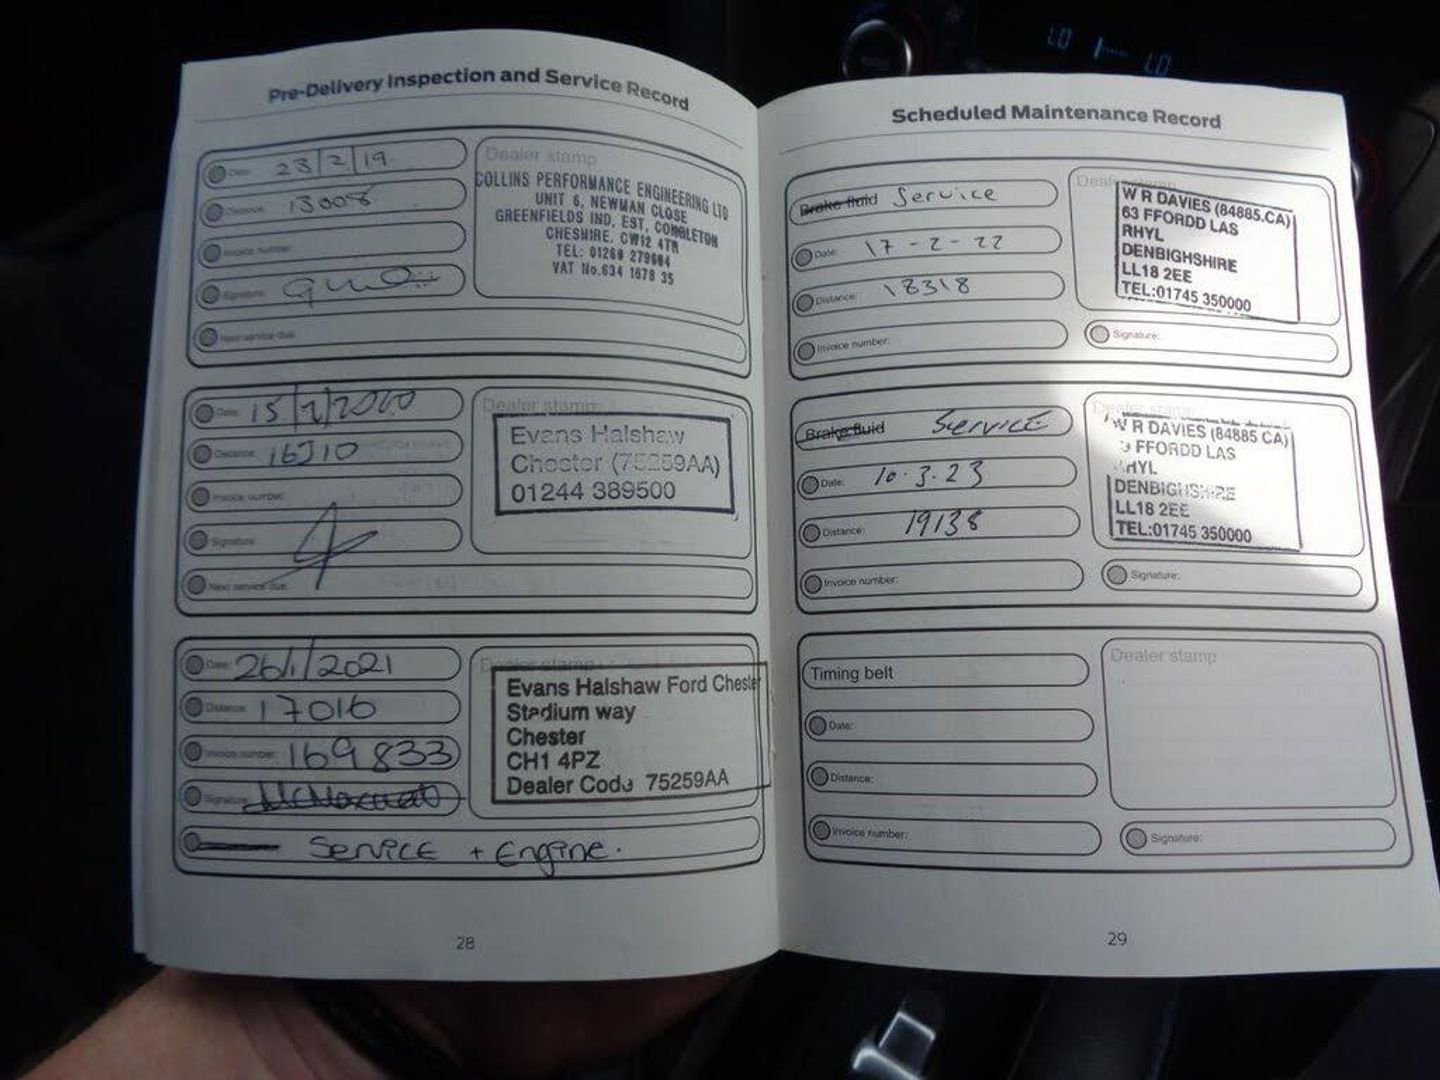 Pre-Delivery Inspection and Service Record
Date: 23/2/19
Distance: 13008
Invoice number:
Signature:
Next service due:
Dealer stamp
COLLINS PERFORMANCE ENGINEERING LTD
UNIT 6, NEWMAN CLOSE
GREENFIELDS IND. EST, CONGLETON
CHESHIRE. CW12 4TR
TEL: 01260 279604
VAT No.634 1678 35
Date: 15/2/2020
Distance: 16510
Invoice number:
Signature:
Next service due:
Dealer stamp
Evans Halshaw
Chester (75259AA)
01244 389500
Date: 26/1/2021
Distance: 17016
Invoice number: 169833
Signature:
Service + Engine.
Dealer stamp
Evans Halshaw Ford Chester
Stadium way
Chester
CH1 4PZ
Dealer Code 75259AA
28
Scheduled Maintenance Record
Brake fluid Service
Date: 17-2-22
Distance: 18318
Invoice number:
Dealer stamp
W R DAVIES (84885.CA)
63 FFORDD LAS
RHYL
DENBIGHSHIRE
LL18 2EE
TEL:01745 350000
Signature:
Brake fluid Service
Date: 10.3.23
Distance: 19138
Invoice number:
Dealer stamp
W R DAVIES (84885 CA)
FFORDD LAS
RHYL
DENBIGHSHIRE
LL18 2EE
TEL:01745 350000
Signature:
Timing belt
Date:
Distance:
Invoice number:
Dealer stamp
Signature:
29
LO LO